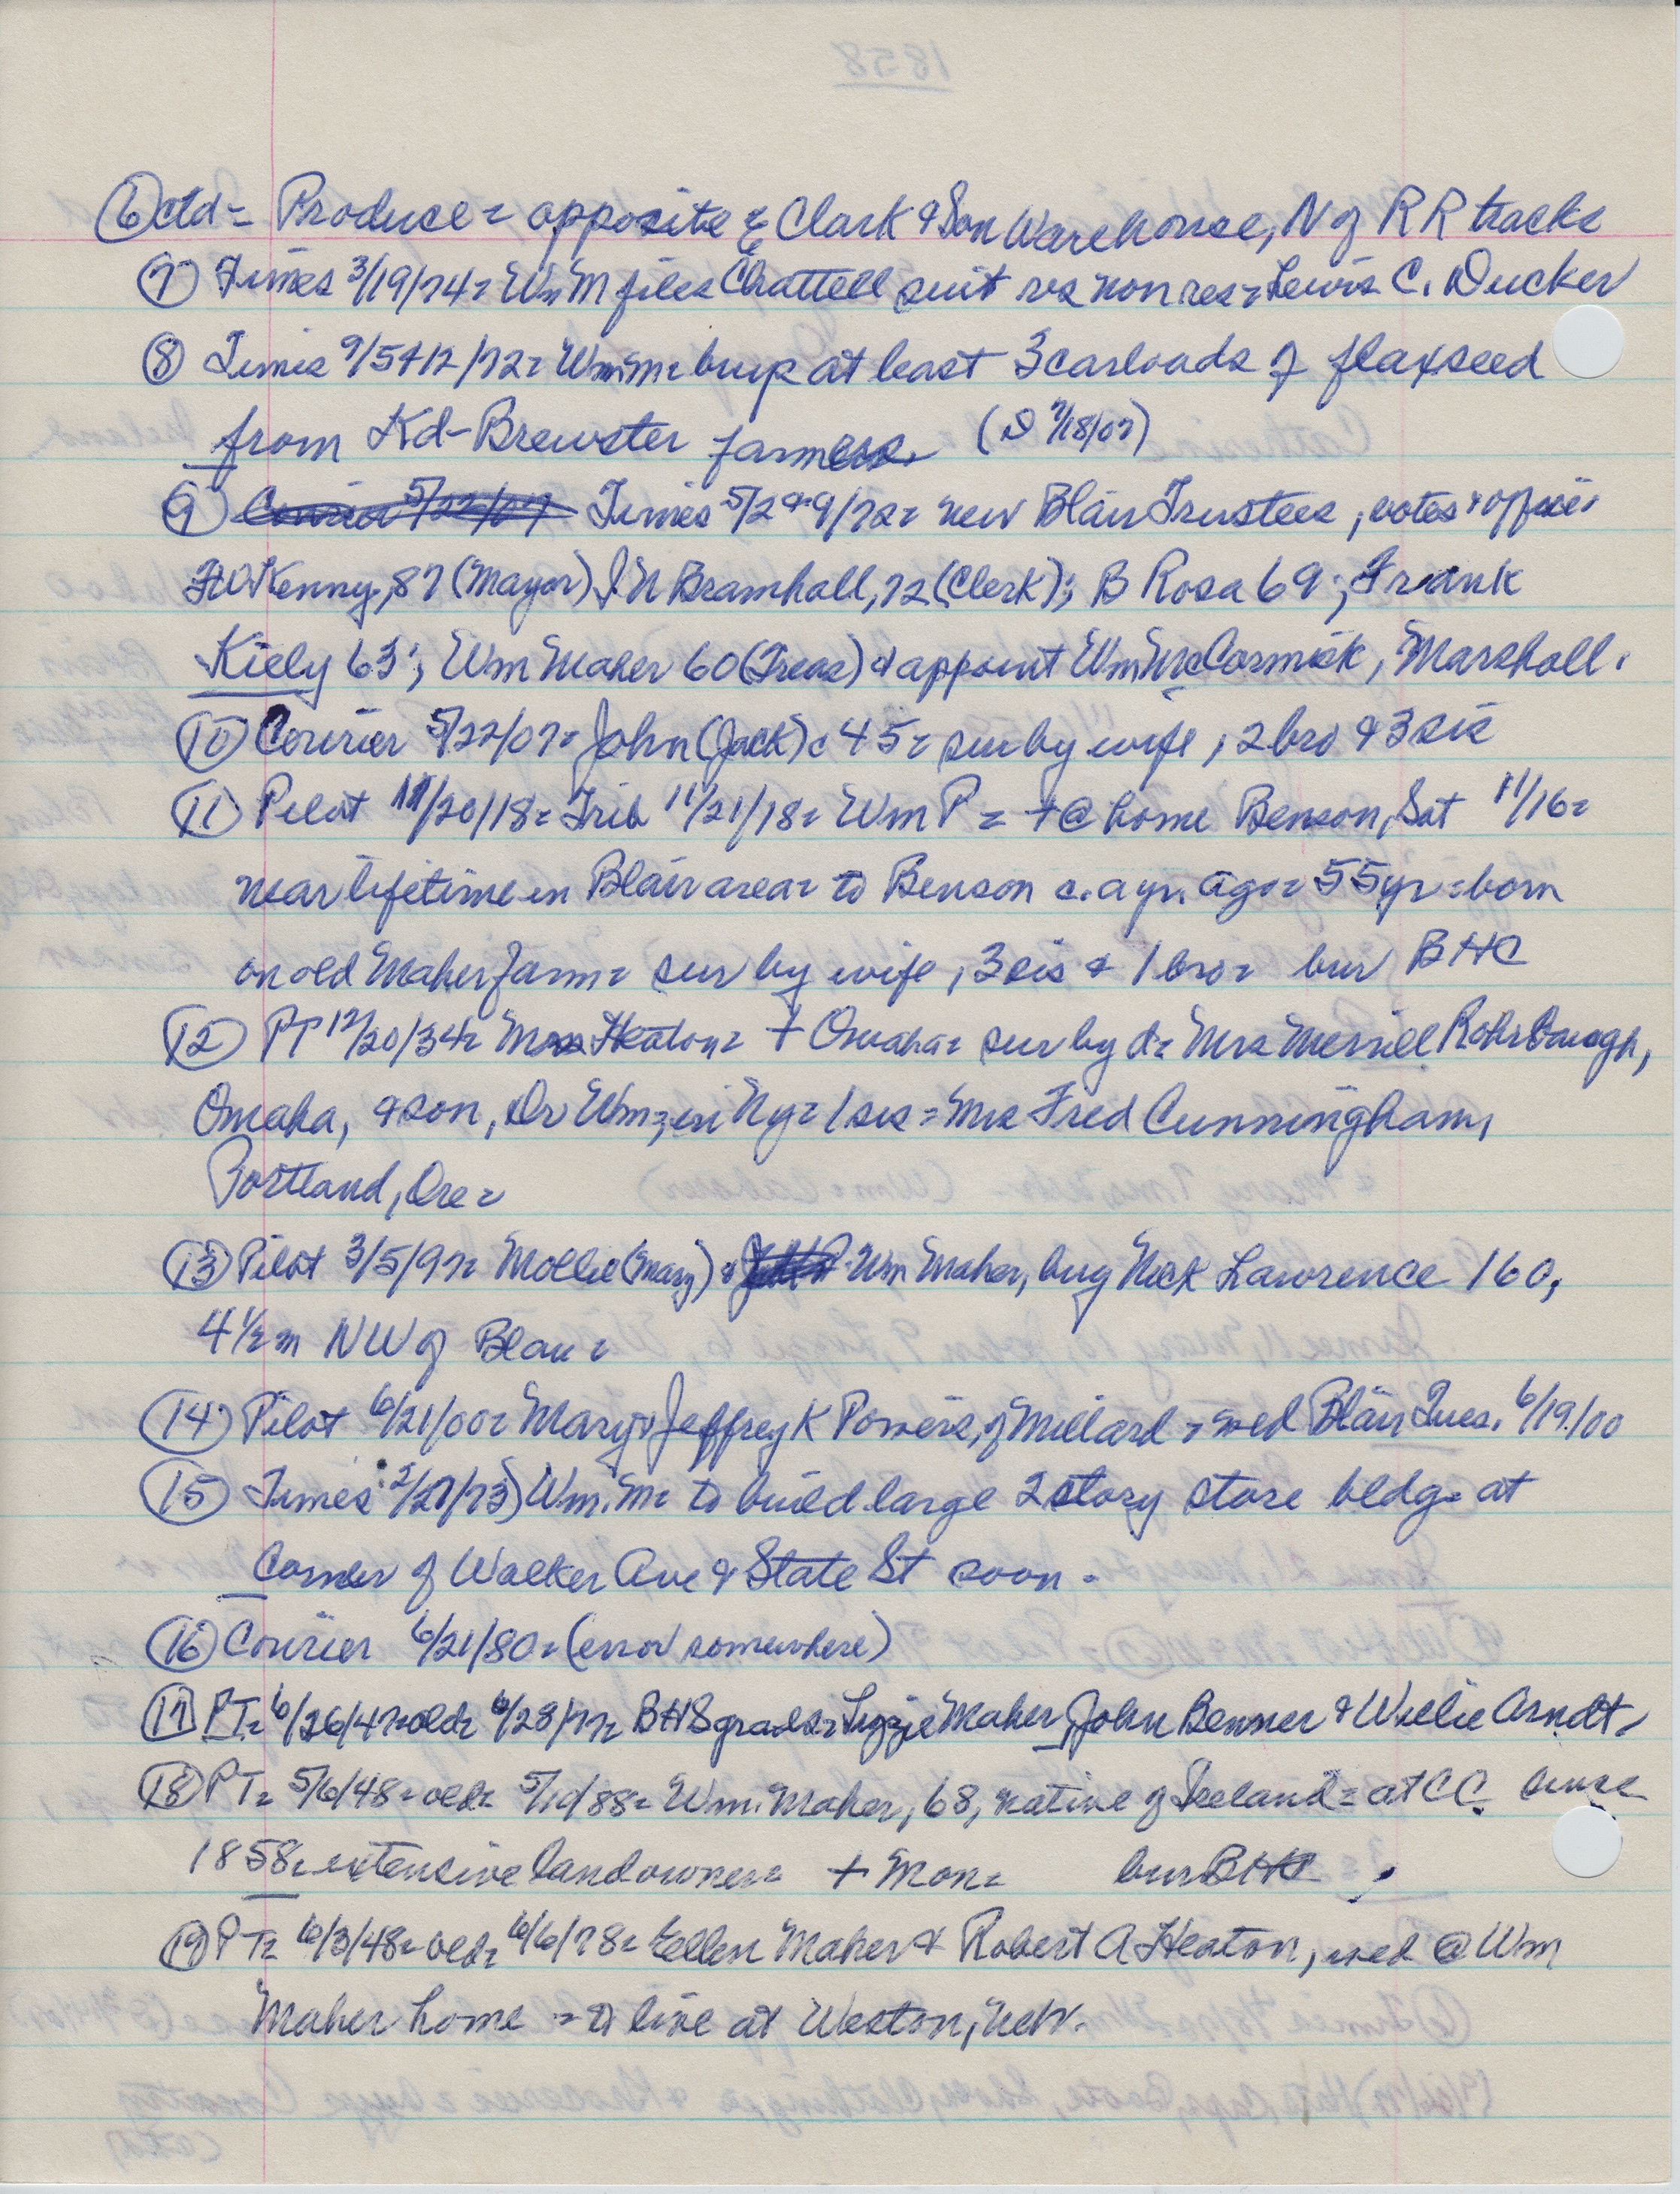 ⑥ ctd= Produce= opposite E Clark & Son Warehouse, N of RR tracks
⑦ Times 3/19/74= Wm M files Chattell suit vs nonres= Lewis C. Ducker
⑧ Times 9/5+12/72= Wm M= buys at least 3 carloads of flaxseed
from Kd-Brewster farmers. (D 7/18/07)
⑨ Times 5/2+9/72= new Blair Trustees, votes & office:
FW Kenny, 87 (Mayor) J N Bramhall, 72 (Clerk); B Rosa 69; Frank
Kiely 63; Wm Maher 60 (Treas) & appoint Wm McCormick, Marshall.
⑩ Courier 5/22/07= John (Jack) c 45= sur by wife, 2 bro & 3 sis
⑪ Pilot 11/20/18= Trib 11/21/18= Wm P = + @ home Benson, Sat 11/16=
near lifetime in Blair area= to Benson c. a yr. ago= 55 yr= born
on old Maher farm= sur by wife, 3 sis & 1 bro= bur BHC
⑫ PT 12/20/34= Mrs Heaton= + Omaha= sur by d= Mrs Merrill Rohrbaugh,
Omaha, & son, Dr Wm, in Ny= 1 sis = Mrs Fred Cunningham,
Portland, Ore=
⑬ Pilot 3/5/97= Mollie (Mary) & Wm Maher, buy Nick Lawrence 160,
4½ m NW of Blair=
⑭ Pilot 6/21/00= Mary & Jeffrey K Powers, of Millard = wed Blair Tues. 6/19/00
⑮ Times 2/27/73) Wm. M= to build large 2 story store bldg= at
Corner of Walker Ave & State St soon-
⑯ Courier 6/21/80= (error somewhere)
⑰ PT= 6/26/47= old= 6/28/77= BHS grads= Lizzie Maher, John Benner & Willie Arndt,
⑱ PT= 5/6/48= old= 5/10/88= Wm. Maher, 68, native of Ireland= at CC since
1858= extensive landowner= + Mon= bur BHC
⑲ PT= 6/3/48= old= 6/6/78= Ellen Maher & Robert A Heaton, wed @ Wm
Maher home = to live at Weston, Neb.